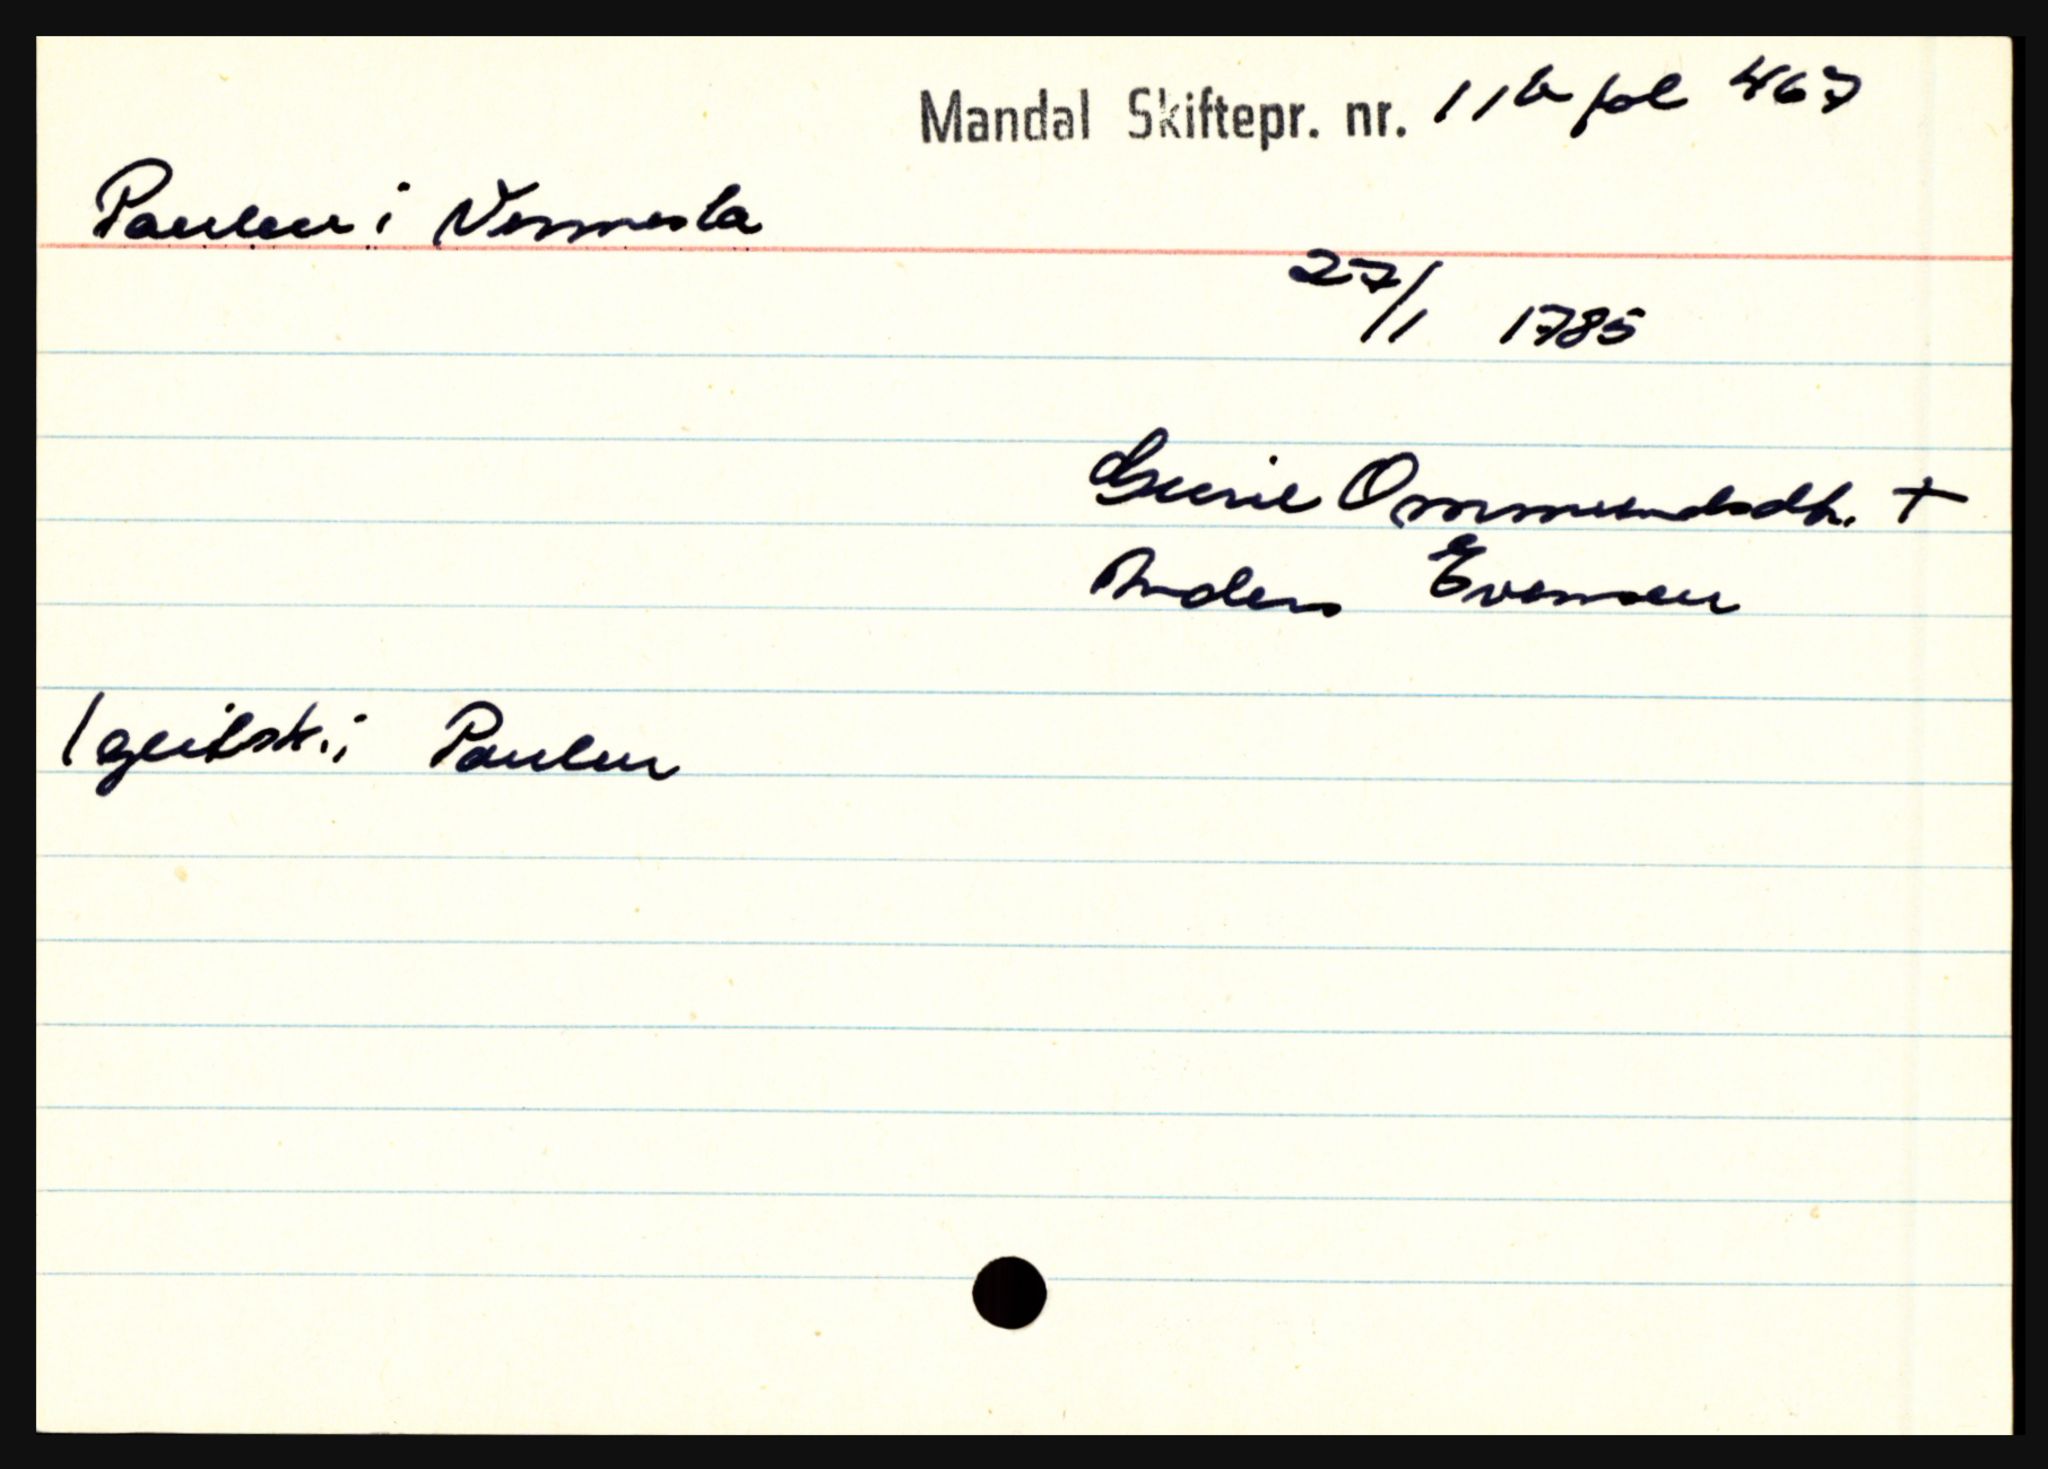 Mandal Skiftepr. nr. 11b fol 467
Paulen i Vennesla
27/1 1785
Gunil Ommundsdtr. +
Anders Evensen
1 geitsk. i Paulen